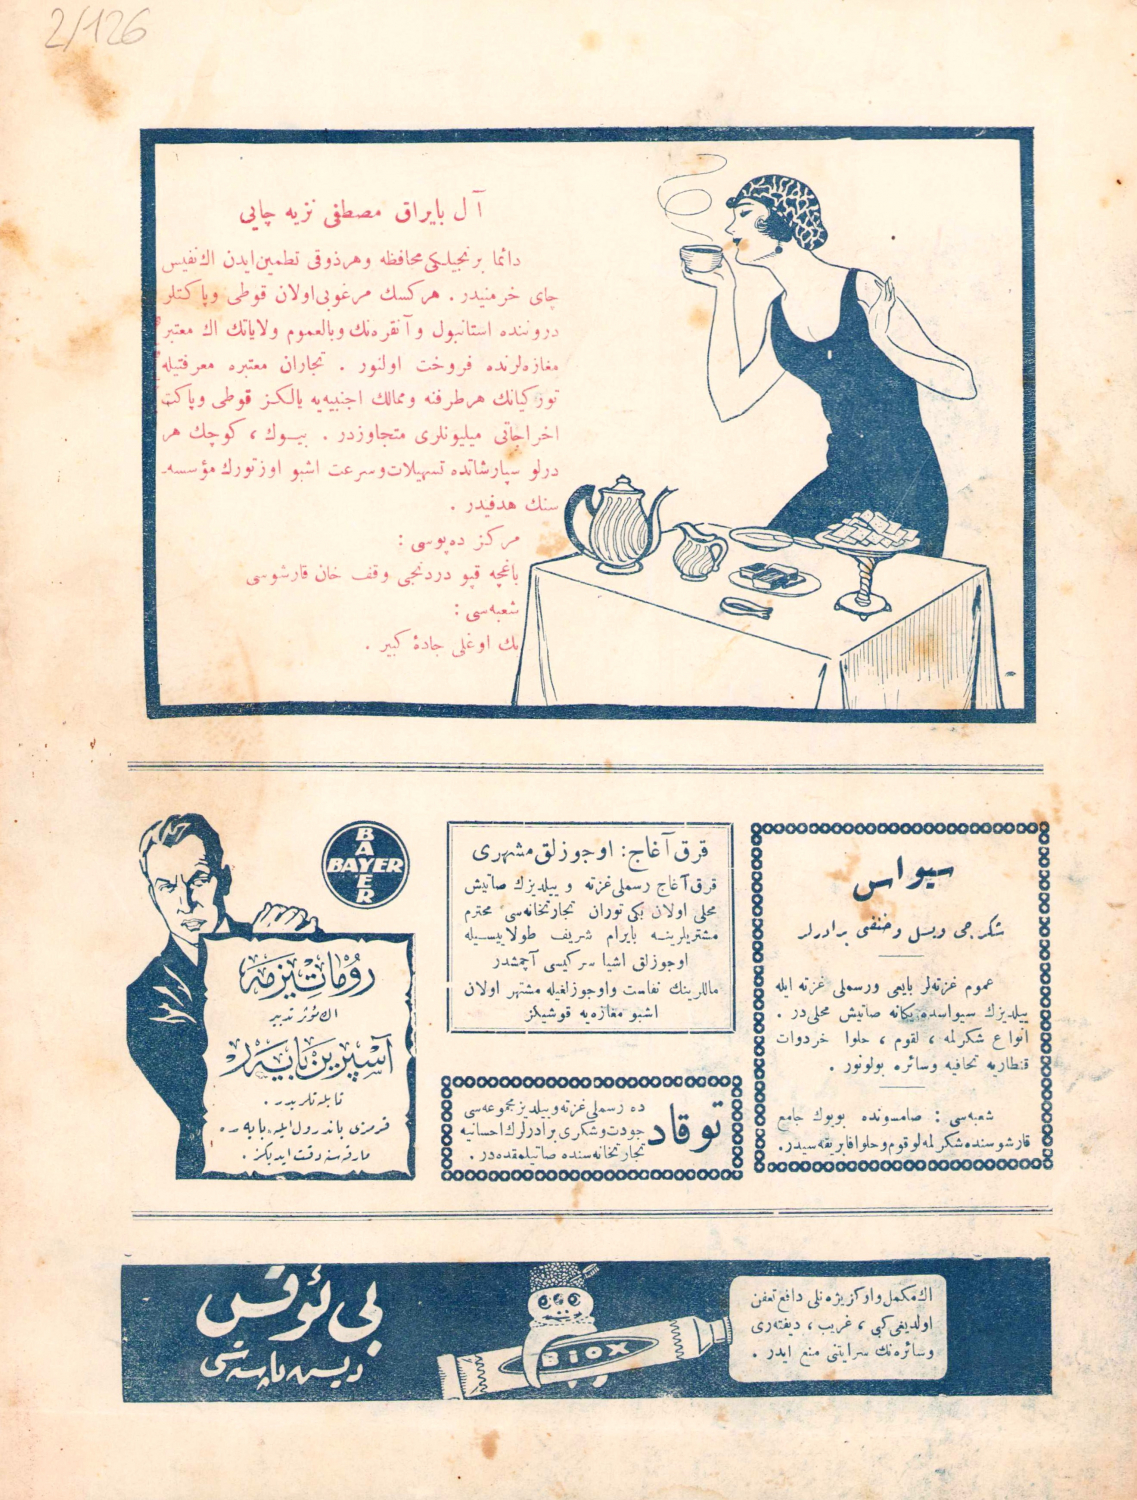 2/126
آل بایراق مصطفی نزیه چایی
دائما برنجیلکی محافظه وهرذوقی تطمین ایدن اك نفیس
چای خرمنیدر . هركسك مرغوبی اولان قوطی وپاكتلر
دروننده استانبول وآنقره نك وبالعموم ولایاتك اك معتبر
مغازه لرنده فروخت اولنور . تجاران معتبره معرفتیله
توركیانك هرطرفنه وممالك اجنبیه یه یالكز قوطی وپاكت
اخراجاتی میلیونلری متجاوزدر . بیوك ، كوچك هر
درلو سپارشاتده تسهیلات وسرعت اشبو اوزتورك مؤسسه ـ
سنك هدفیدر .
مركز ده پوسی :
باغچه قپو دردنجی وقف خان قارشوسی
شعبه سی :
بك اوغلی جادۀ كبیر .
BAYER
BAYER
روماتیزمه
اك مؤثر تدبیر
آسپیرین بایه ر
تابله تلریدر .
قرمزی باندرول ایله بایه ره
مارقه سنه دقت ایدیكز .
قرق آغاج : اوجوزلق مشهری
قرق آغاج رسملی غزته و ییلدیزك صاتیش
محلی اولان یكی توران تجارتخانه سی محترم
مشتریلرینه بایرام شریف طولاییسیله
اوجوزلق اشیا سركیسی آچمشدر
ماللرینك نفاست واوجوزلغیله مشتهر اولان
اشبو مغازه یه قوشیكز
توقاد
ده رسملی غزته وییلدیز مجموعه سی
جودت وشكری برادرلرك احسانیه
تجارتخانه سنده صاتیلمقده در .
سیواس
شكرجی ویسل وحنفی برادرلر
عموم غزته لر بایعی ورسملی غزته ایله
ییلدیزك سیواسده یكانه صاتیش محلی در .
انواع شكرلمه ، لقوم ، حلوا خردوات
قنطاریه تحافیه وسائره بولونور .
شعبه سی : صامسونده بویوك جامع
قارشوسنده شكرلمه لوقوم وحلوا فابریقه سیدر .
بی ئوقس
دیش پاتسی
BIOX
اك مكمل واوكزیژه نلی دافع تعفن
اولدیغی كبی ، غریب ، دیفته ری
وسائره نك سرایتنی منع ایدر .